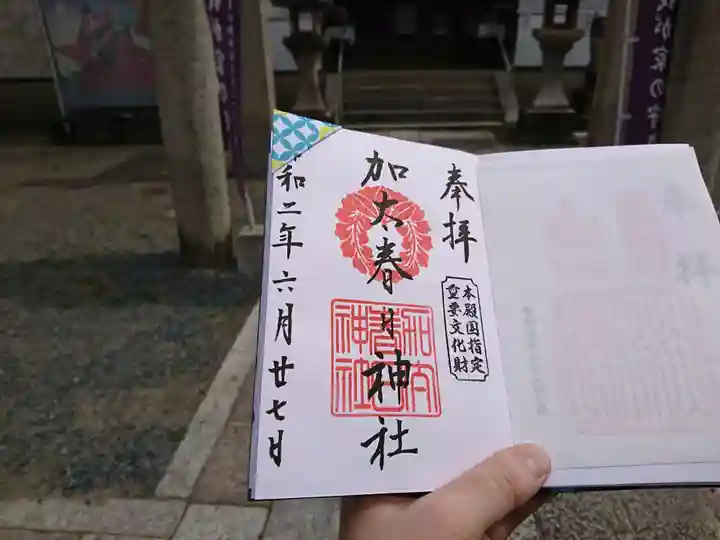 奉拝
本殿国指定
重要文化財
加太春日神社
和二年六月廿七日